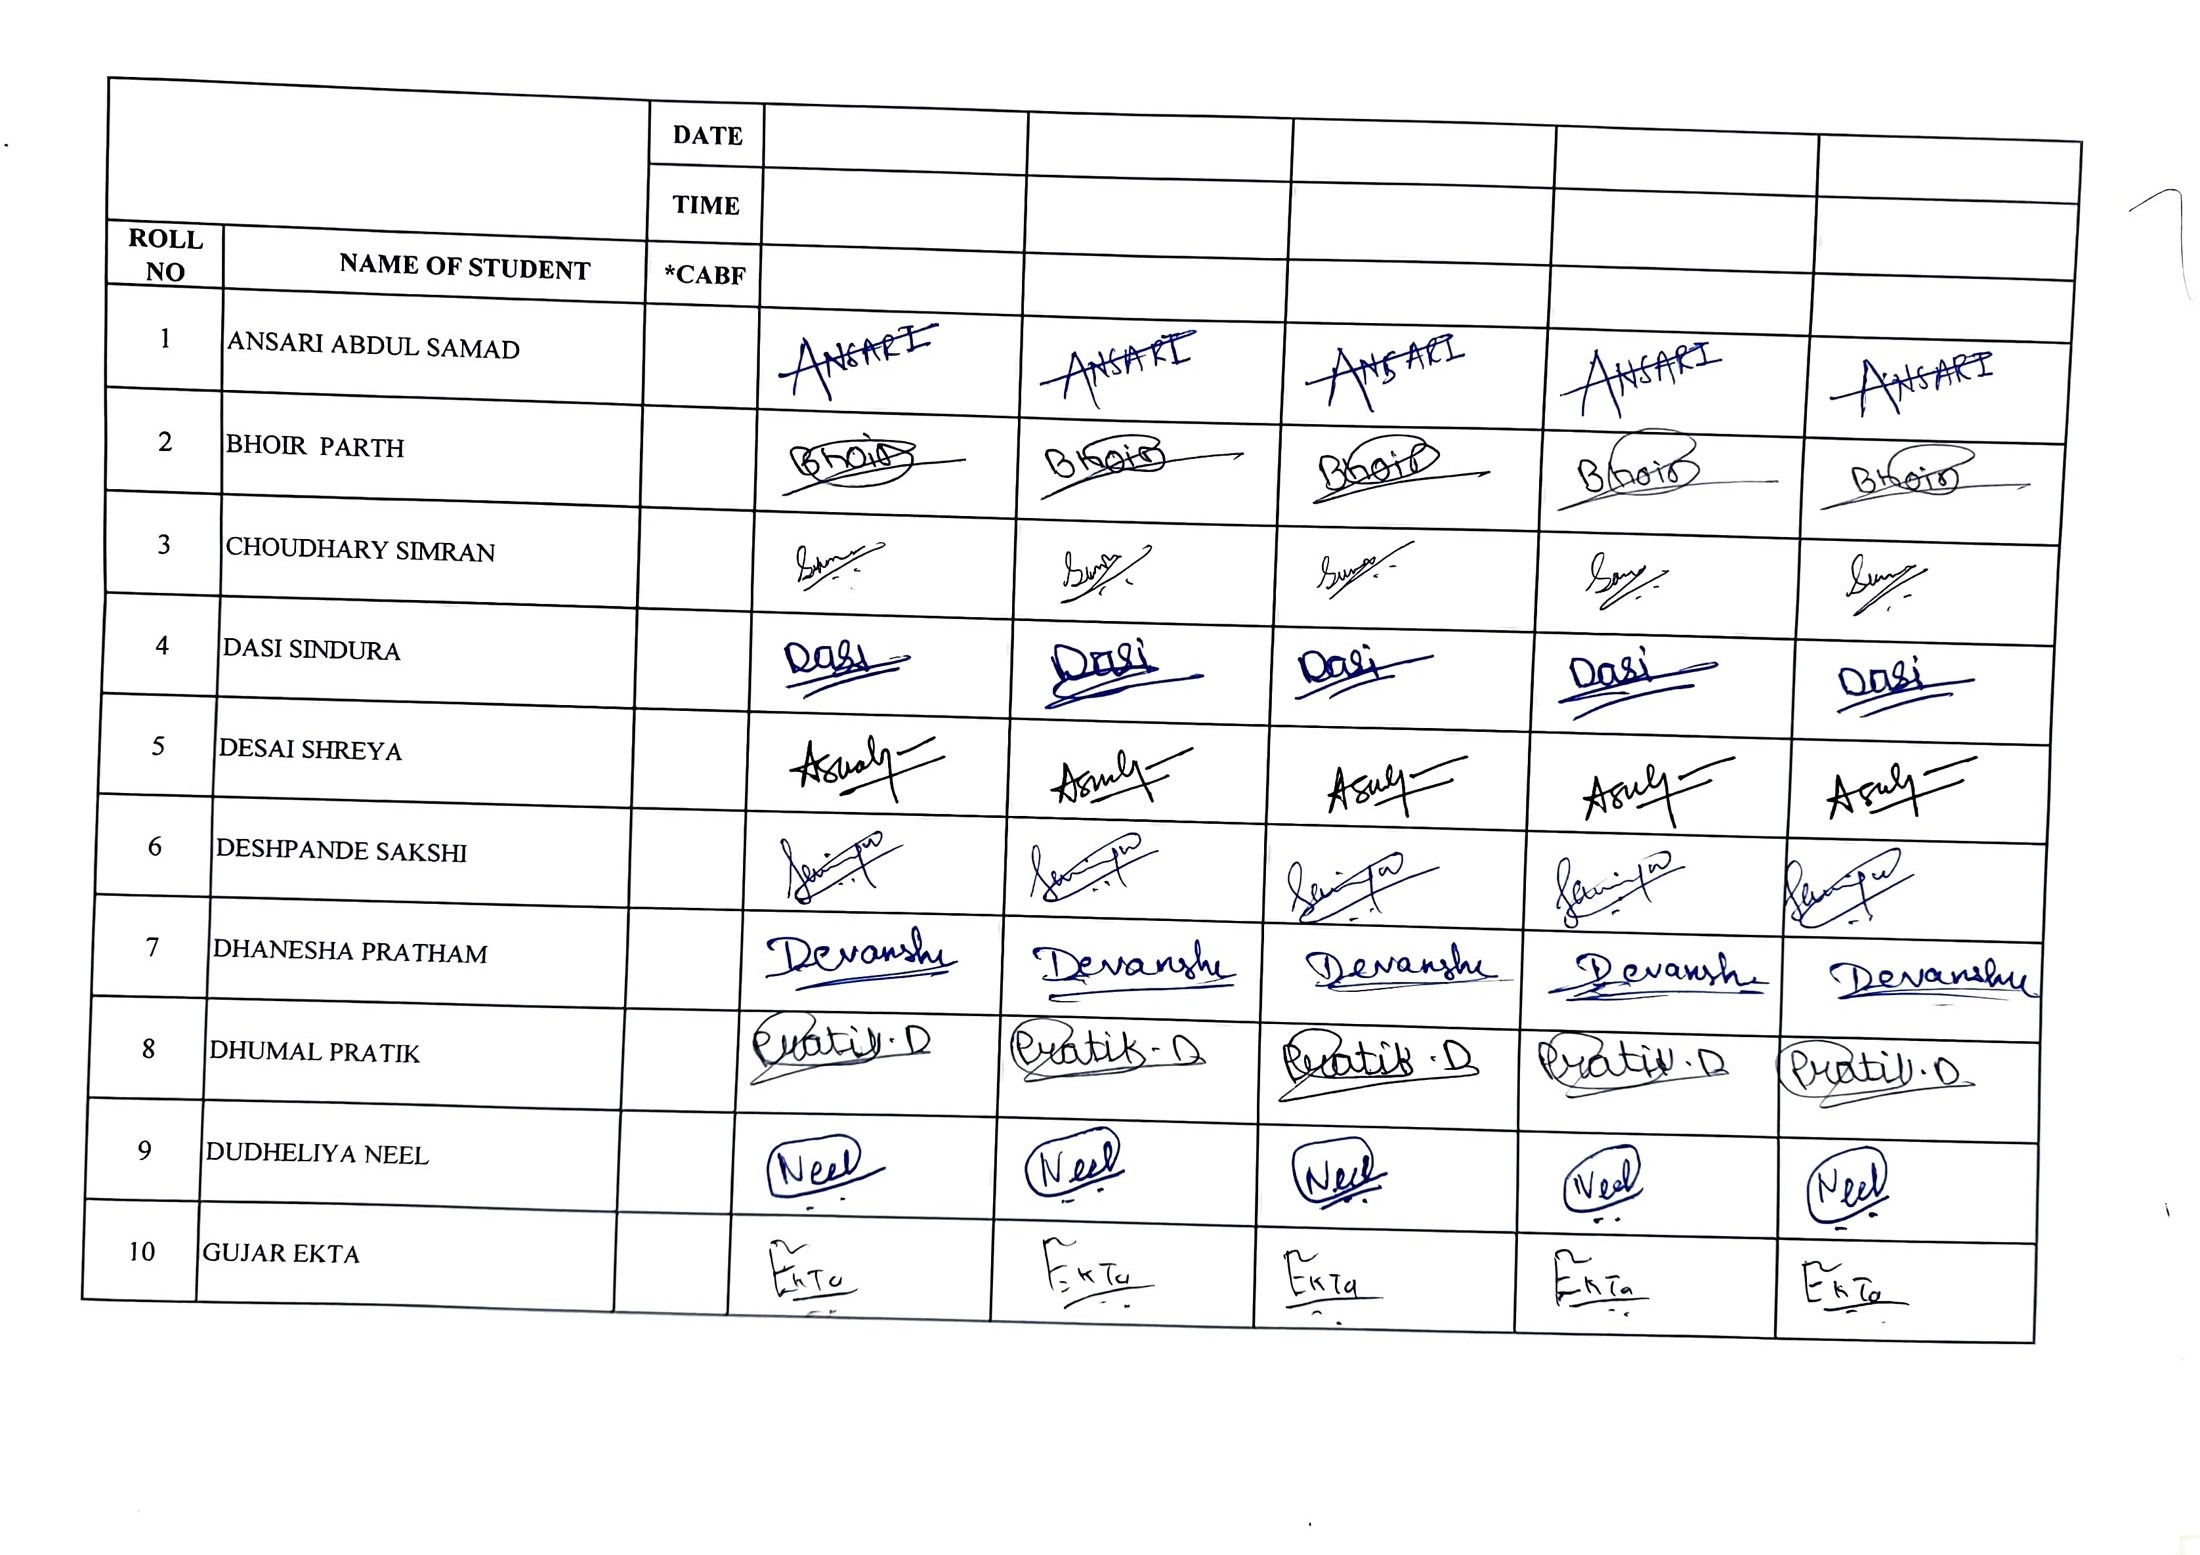 DATE
TIME
ROLL NO NAME OF STUDENT *CABF
1 ANSARI ABDUL SAMAD ANSARI ANSARI ANSARI ANSARI ANSARI
2 BHOIR PARTH Bhoir Bhoir Bhoir Bhoir Bhoir
3 CHOUDHARY SIMRAN
4 DASI SINDURA Dasi Dasi Dasi Dasi Dasi
5 DESAI SHREYA
6 DESHPANDE SAKSHI
7 DHANESHA PRATHAM Devanshu Devanshu Devanshu Devanshu Devanshu
8 DHUMAL PRATIK Pratik.D Pratik-D Pratik.D Pratik.D Pratik.D
9 DUDHELIYA NEEL Neel Neel Neel Neel Neel
10 GUJAR EKTA EKTa EKTa EKTa EKTa EKTa